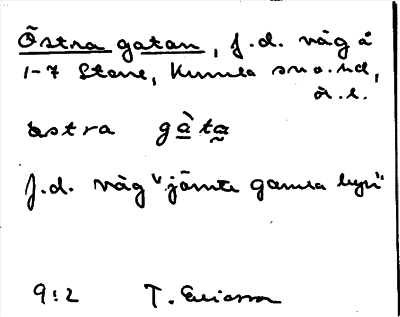 Östra gatan, f.d. väg å
1-7 Stene, Kumla sn o. hd,
ä. l.
östra gà̱ta̰
f.d. väg "jämte gamla byn"
9:2 T. Ericsson